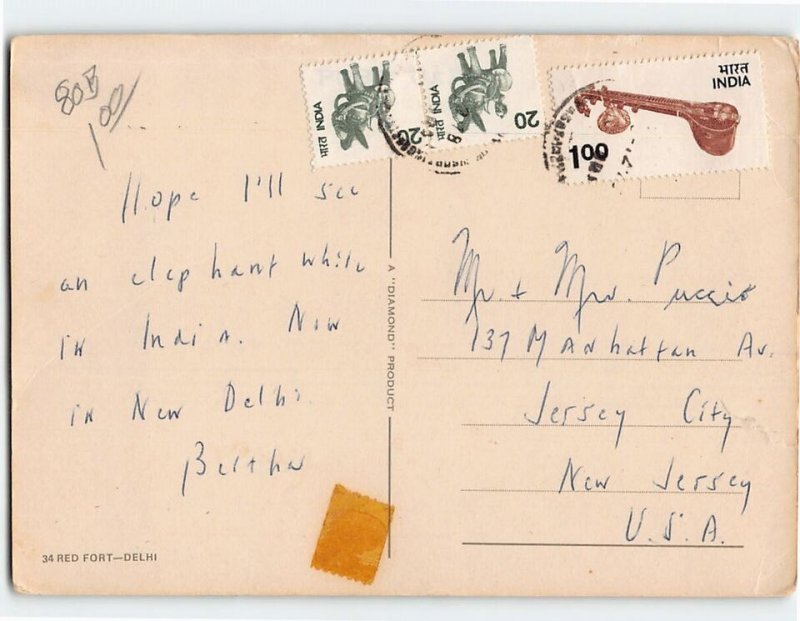 80B
1.00
भारत INDIA
20
भारत INDIA
20
भारत
INDIA
1.00
Hope I'll see
an elephant while
in India. Now
in New Delhi.
Bertha
34 RED FORT—DELHI
A "DIAMOND" PRODUCT
Mr. + Mrs. Puccio
137 Manhattan Av.
Jersey City
New Jersey
U.S.A.